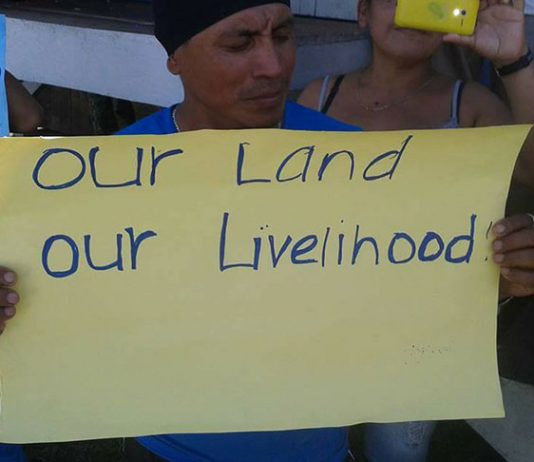 our Land
our Livelihood!